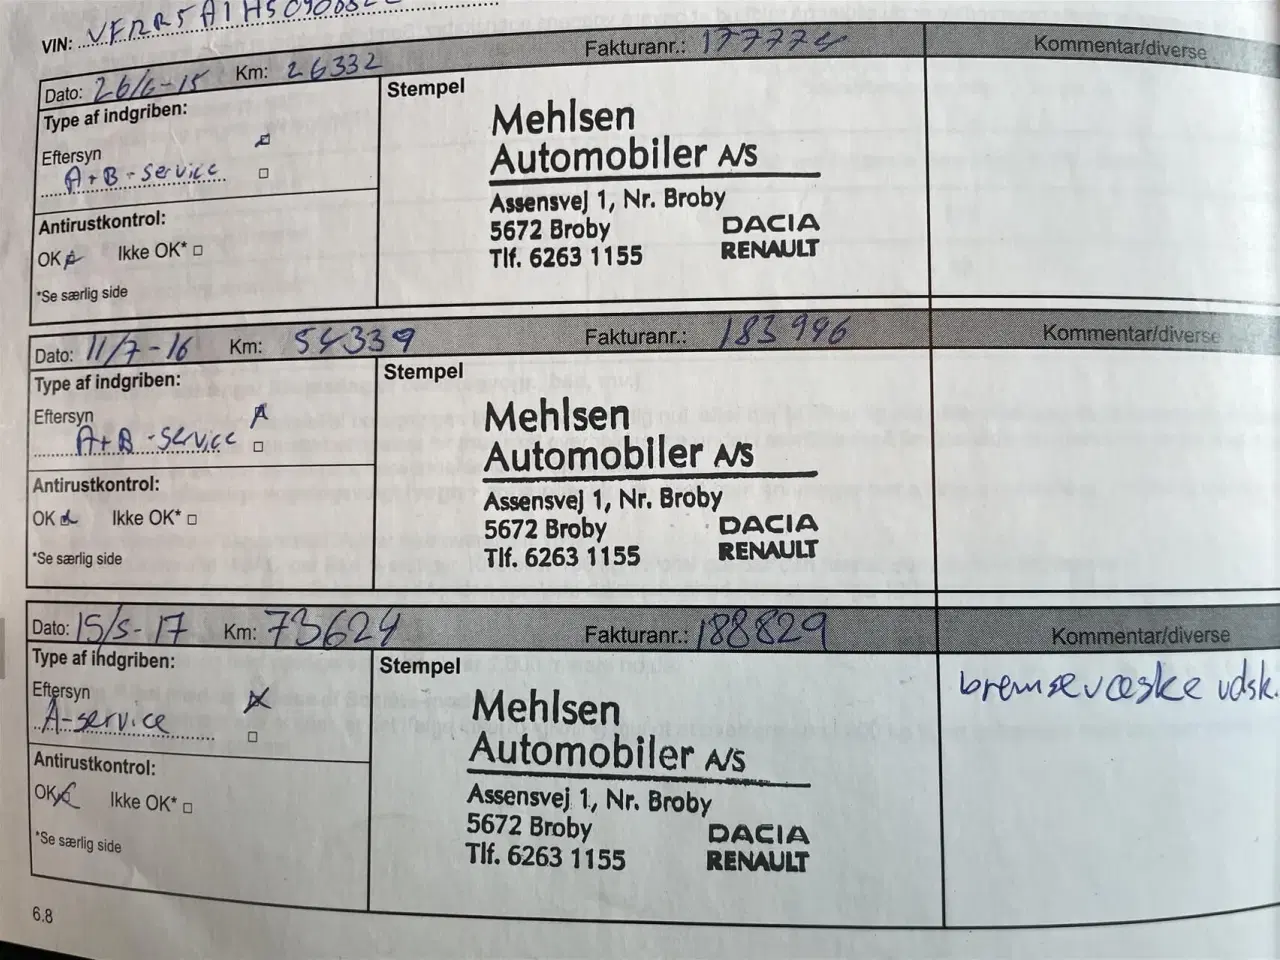 VIN:
Dato: 26/6-15 Km: 26332 Fakturanr.: Kommentar/diverse
Type af indgriben:
Eftersyn
A+B-service
Antirustkontrol:
OK Ikke OK*
*Se særlig side
Stempel
Mehlsen
Automobiler A/S
Assensvej 1, Nr. Broby
5672 Broby DACIA
Tlf. 6263 1155 RENAULT
Dato: 11/7-16 Km: 54339 Fakturanr.: 183996 Kommentar/diverse
Type af indgriben:
Eftersyn
A+B-service
Antirustkontrol:
OK Ikke OK*
*Se særlig side
Stempel
Mehlsen
Automobiler A/S
Assensvej 1, Nr. Broby
5672 Broby DACIA
Tlf. 6263 1155 RENAULT
Dato: 15/5-17 Km: 73624 Fakturanr.: 188829 Kommentar/diverse
Type af indgriben:
Eftersyn
A-service
Antirustkontrol:
OK Ikke OK*
*Se særlig side
Stempel
Mehlsen
Automobiler A/S
Assensvej 1, Nr. Broby
5672 Broby DACIA
Tlf. 6263 1155 RENAULT
bremsevæske udsk.
6.8